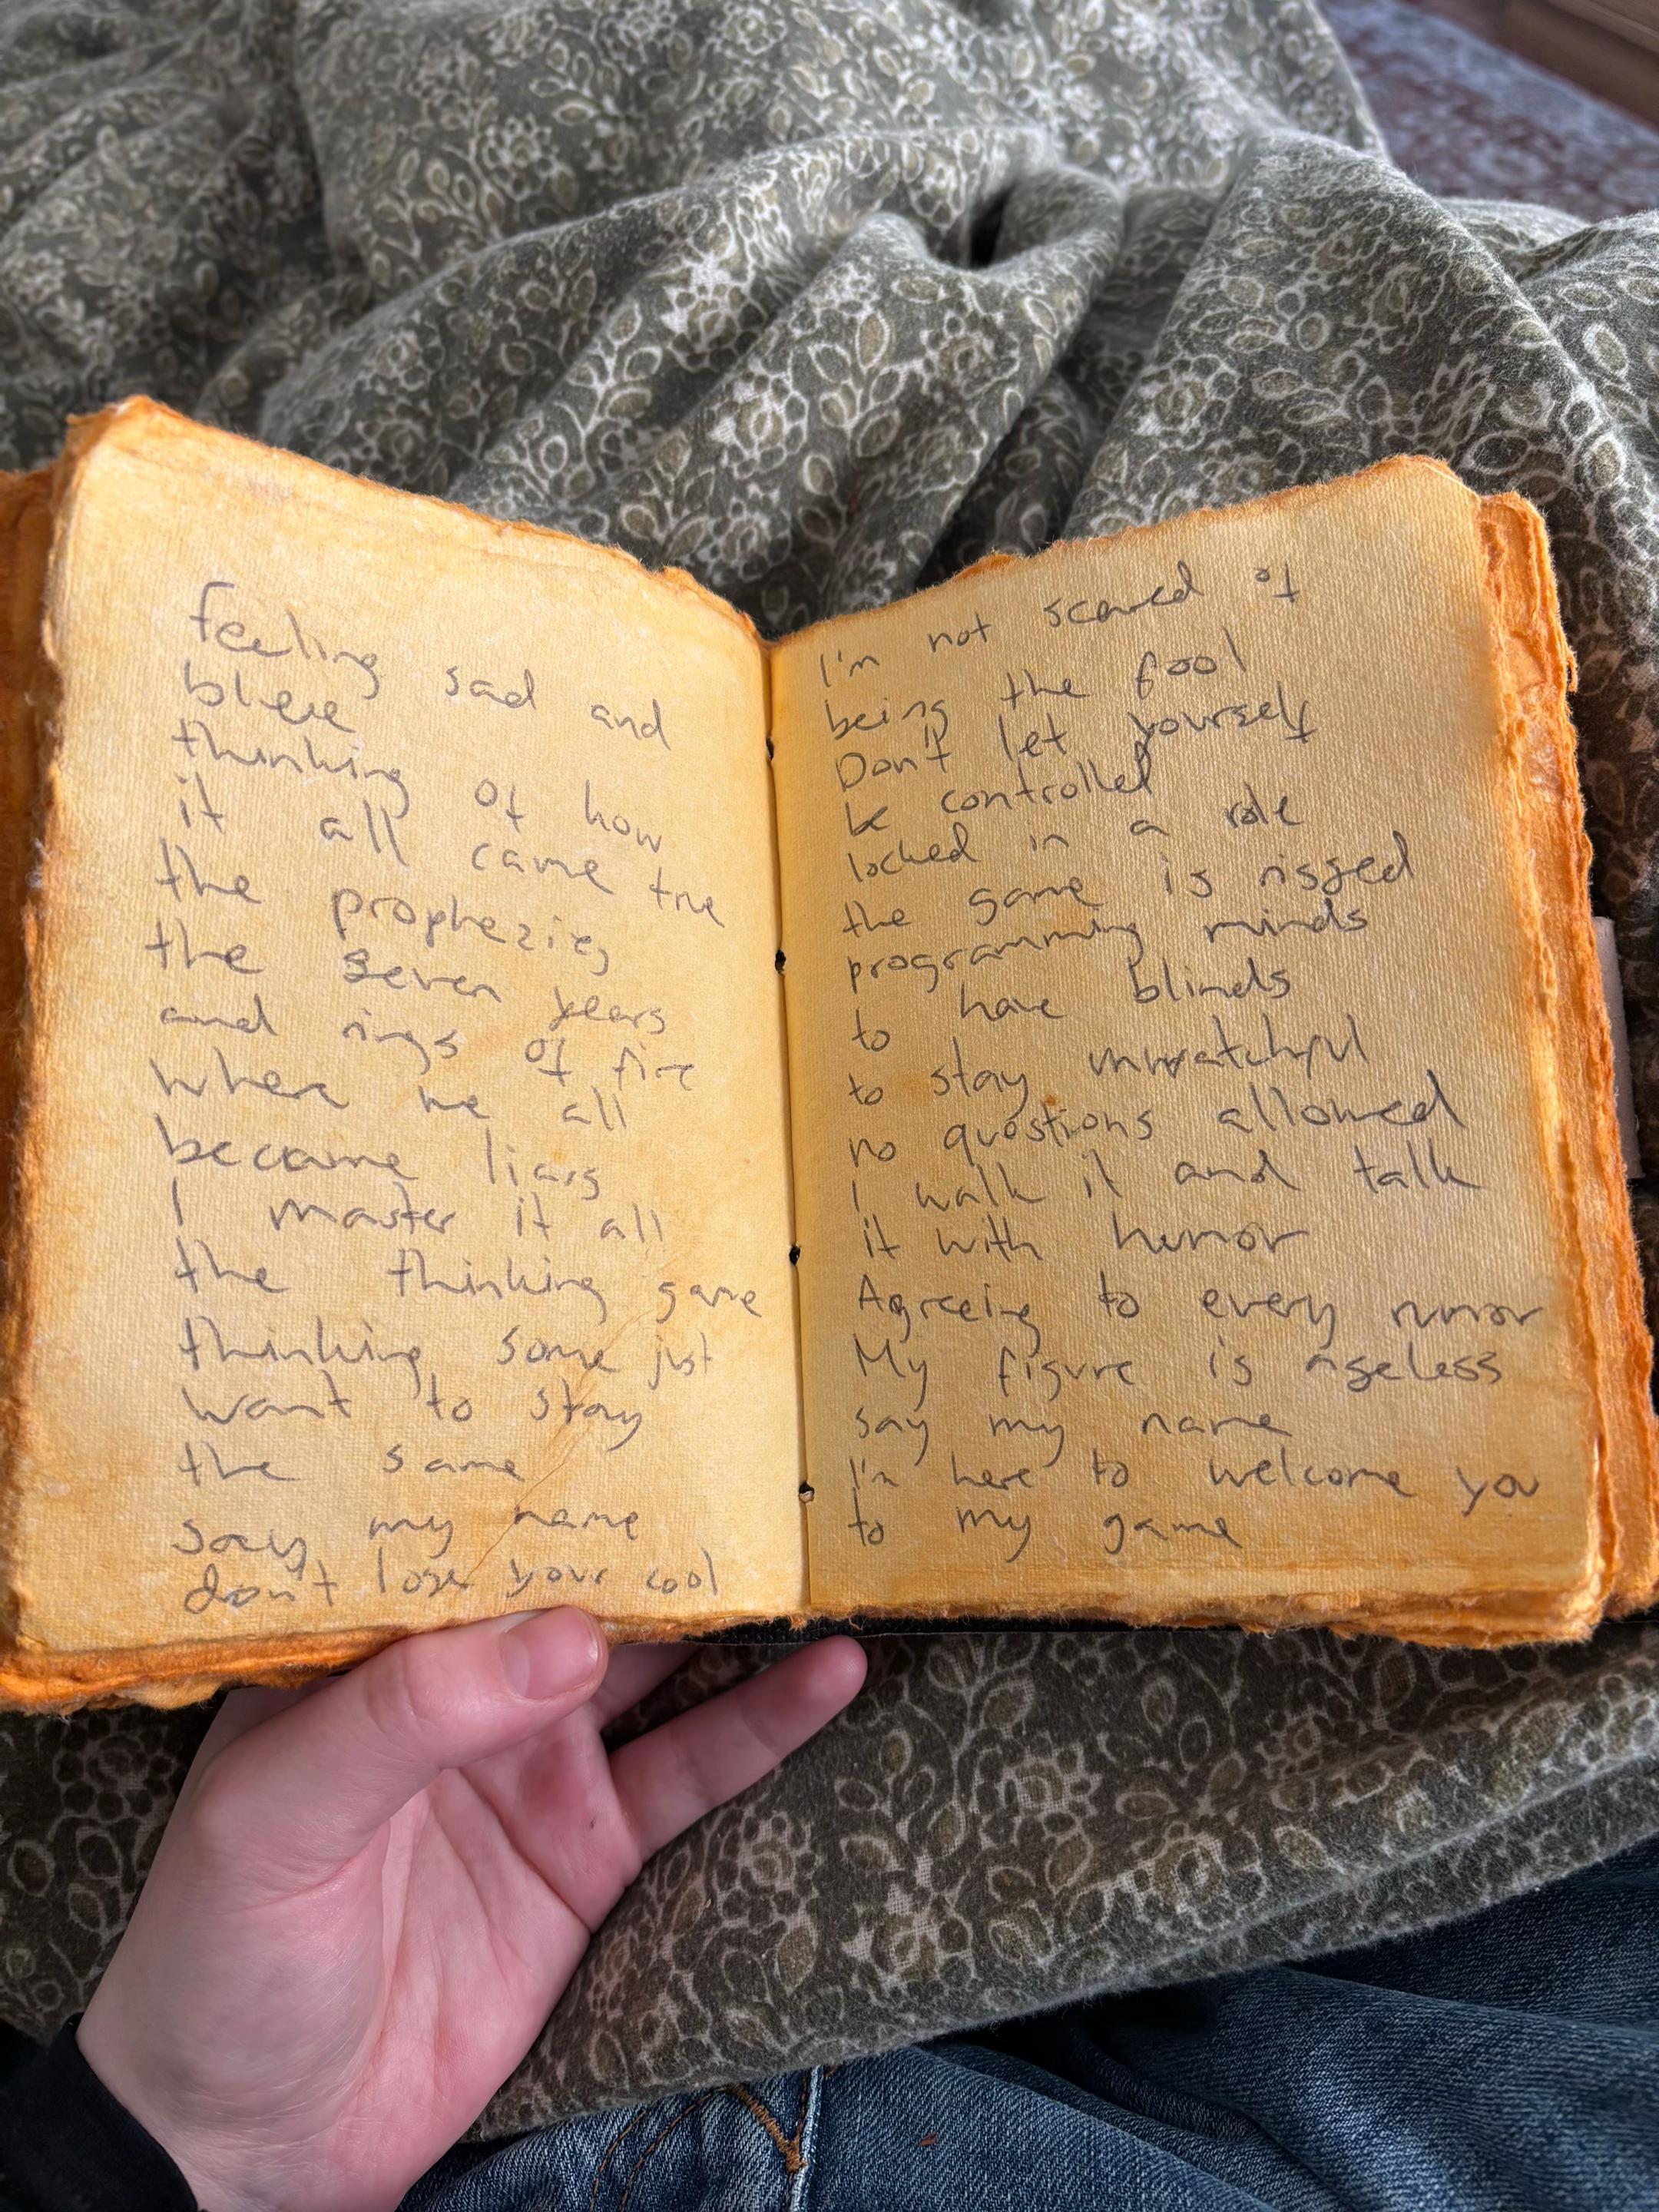 feeling sad and
bleee
thinking of how
it all came true
the prophezies
the seven years
and rings of fire
where we all
became liars
I master it all
the thinking game
thinking some just
want to stay
the same
say my name
don't lose your cool
I'm not scared of
being the fool
Don't let yourself
be controlled
locked in a role
the game is rigged
programming minds
to have blinds
to stay unwatchful
no questions allowed
I walk it and talk
it with humor
Agreeing to every rumor
My figure is ageless
say my name
I'm here to welcome you
to my game